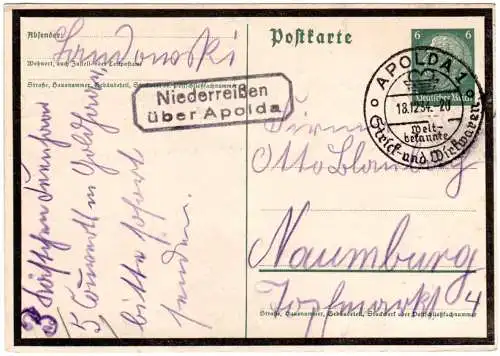 Absender:
Landowski
Wohnort, auch Zustell- oder Leitpostamt
Straße, Hausnummer, Gebäudeteil, Stockwerk oder Postschließfachnummer
Postkarte
6 6
Deutsches Reich
APOLDA 1
18.12.34. 20
Welt-
bekannte
Strick- und Wirkwaren
Niederreißen
über Apolda
Firma
Otto
Naumburg
Topfmarkt 4
Straße, Hausnummer, Gebäudeteil, Stockwerk oder Postschließfachnummer
3
5
bitte sofort
senden.